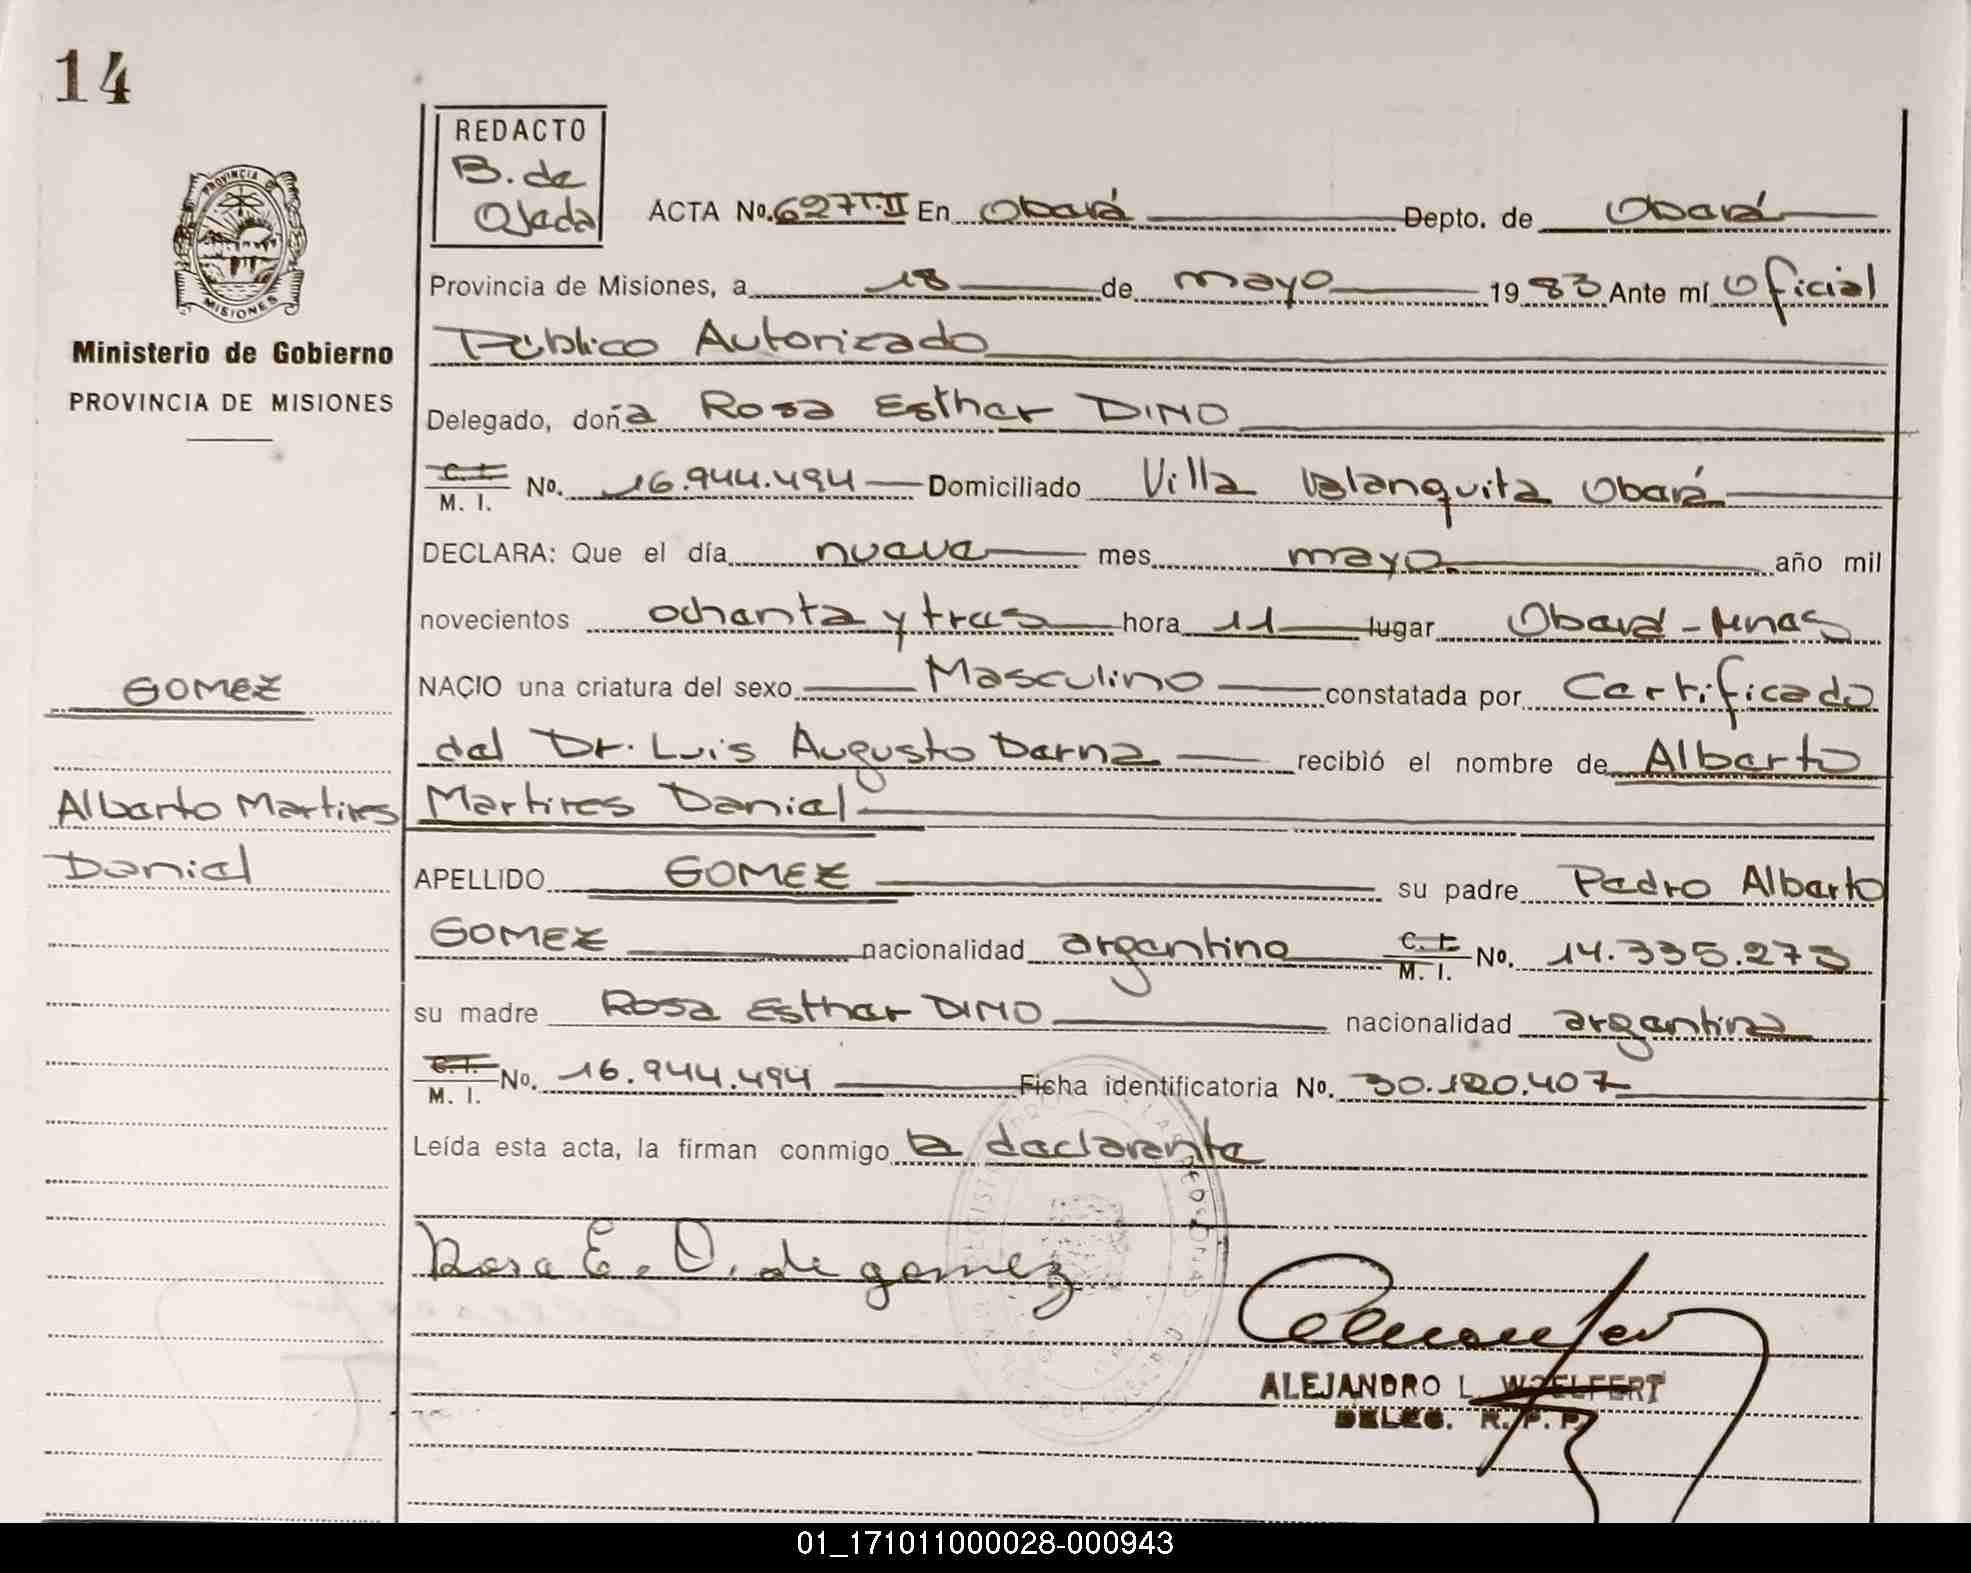 14
REDACTO
B. de
Ojeda
PROVINCIA DE
MISIONES
Ministerio de Gobierno
PROVINCIA DE MISIONES
ACTA No. 627 T. II En Oberá Depto. de Oberá
Provincia de Misiones, a 18 de mayo 1983 Ante mí Oficial
Público Autorizado
Delegado, doña Rosa Esther DINO
C. I.
M. I. No. 16.944.494 Domiciliado Villa Blanquita Oberá
DECLARA: Que el día nueve mes mayo año mil
novecientos ochenta y tres hora 11 lugar Oberá - Mnes
GOMEZ
NACIO una criatura del sexo Masculino constatada por Certificado
del Dr. Luis Augusto Derna recibió el nombre de Alberto
Alberto Martires
Martires Daniel
Daniel
APELLIDO GOMEZ su padre Pedro Alberto
GOMEZ nacionalidad argentino C. I. M. I. No. 14.335.273
su madre Rosa Esther DINO nacionalidad argentina
C. I.
M. I. No. 16.944.494 Ficha identificatoria No. 30.120.407
Leída esta acta, la firman conmigo la declarante
Rosa E. D. de gomez
ALEJANDRO L. WOELFERT
DELEG. R. P. P.
01_171011000028-000943